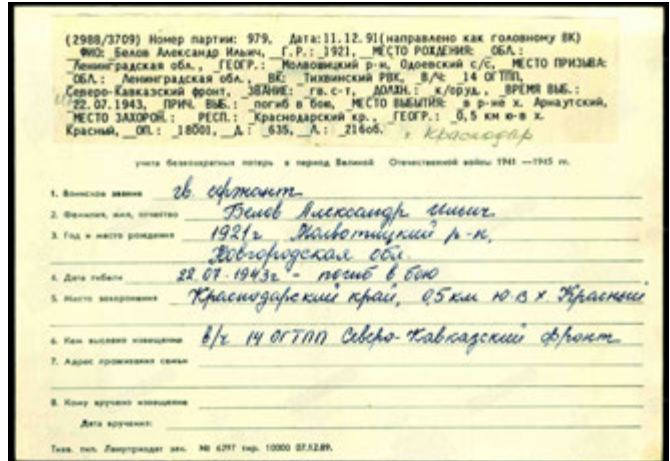 (2988/3709) Номер партии: 979, Дата:11.12.91(направлено как головному ВК)
ФИО: Белов Александр Ильич, Г.Р.: 1921, МЕСТО РОЖДЕНИЯ: ОБЛ.:
Ленинградская обл., ГЕОГР.: Молвошицкий р-н, Одоевский с/с, МЕСТО ПРИЗЫВА:
ОБЛ.: Ленинградская обл., ВК: Тихвинский РВК, В/Ч: 14 ОГТПП,
Северо-Кавказский фронт, ЗВАНИЕ: гв. с-т, ДОЛЖН.: к/оруд., ВРЕМЯ ВЫБ.:
22.07.1943, ПРИЧ. ВЫБ.: погиб в бою, МЕСТО ВЫБЫТИЯ: в р-не х. Арнаутский,
МЕСТО ЗАХОРОН.: РЕСП.: Краснодарский кр., ГЕОГР.: 0,5 км ю-в х.
Красный, ОП.: 18001, Д.: 635, Л.: 216об.
г. Краснодар
учета безвозвратных потерь в период Великой Отечественной войны 1941—1945 гг.
1. Воинское звание гв. сержант
2. Фамилия, имя, отчество Белов Александр Ильич
3. Год и место рождения 1921г Молвотицкий р-н,
Новгородская обл.
4. Дата гибели 22.07.1943г - погиб в бою
5. Место захоронения Краснодарский край, 0,5 км ю-в х. Красный
6. Кем выслано извещение в/ч 14 ОГТПП Северо-Кавказский фронт
7. Адрес проживания семьи
8. Кому вручено извещение
Дата вручения:
Тихв. тип. Ленуприздат зак. № 6297 тир. 10000 07.12.89.